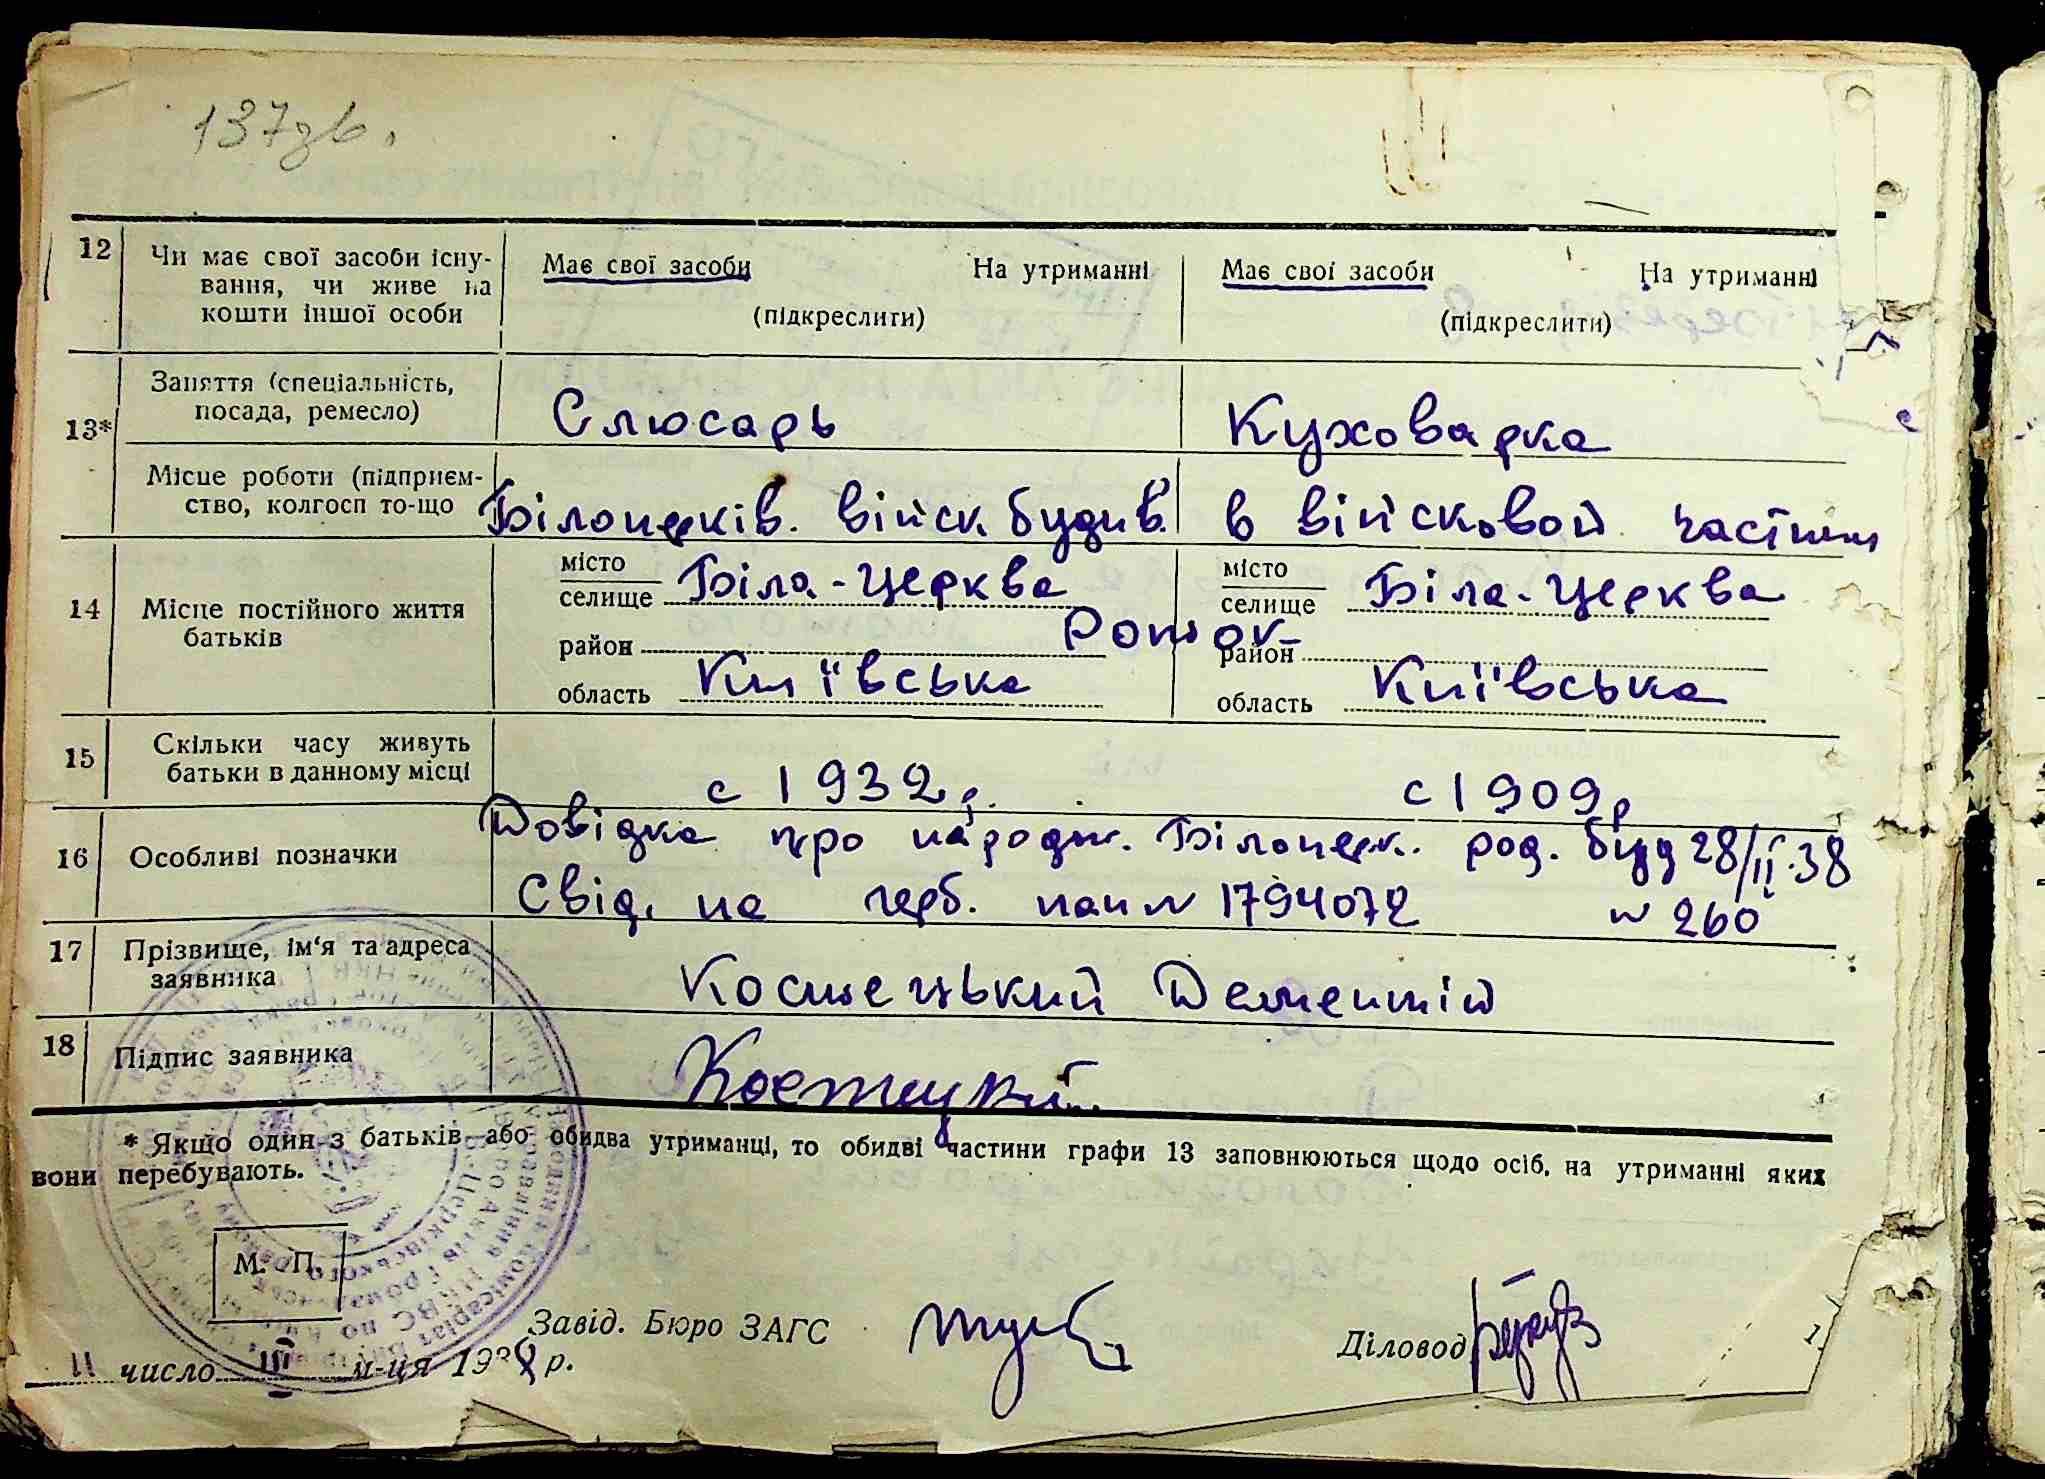 137зв.
12 Чи має свої засоби існу- Має свої засоби На утриманні Має свої засоби На утриманні
вання, чи живе на
кошти іншої особи (підкреслити) (підкреслити)
13* Заняття (спеціальність,
посада, ремесло) Слюсарь Куховарка
Місце роботи (підприєм-
ство, колгосп то-що Білоцерків. військ будив. в війсковой частини
14 Місце постійного життя
батьків
місто Біла-Церква місто Біла-Церква
селище селище
район район
область Київська область Київська
15 Скільки часу живуть
батьки в данному місці с 1932р. с 1909р
16 Особливі позначки Довідка про народж. Білоцерк. род. буд 28/II.38
Свід. на герб. пап № 1794072 № 260
17 Прізвище, ім'я та адреса
заявника Костецький Дементій
18 Підпис заявника Костецкий
* Якщо один з батьків або обидва утриманці, то обидві частини графи 13 заповнюються щодо осіб, на утриманні яких
вони перебувають.
М. П.
Завід. Бюро ЗАГС Діловод
11 число III м-ця 1938 р.